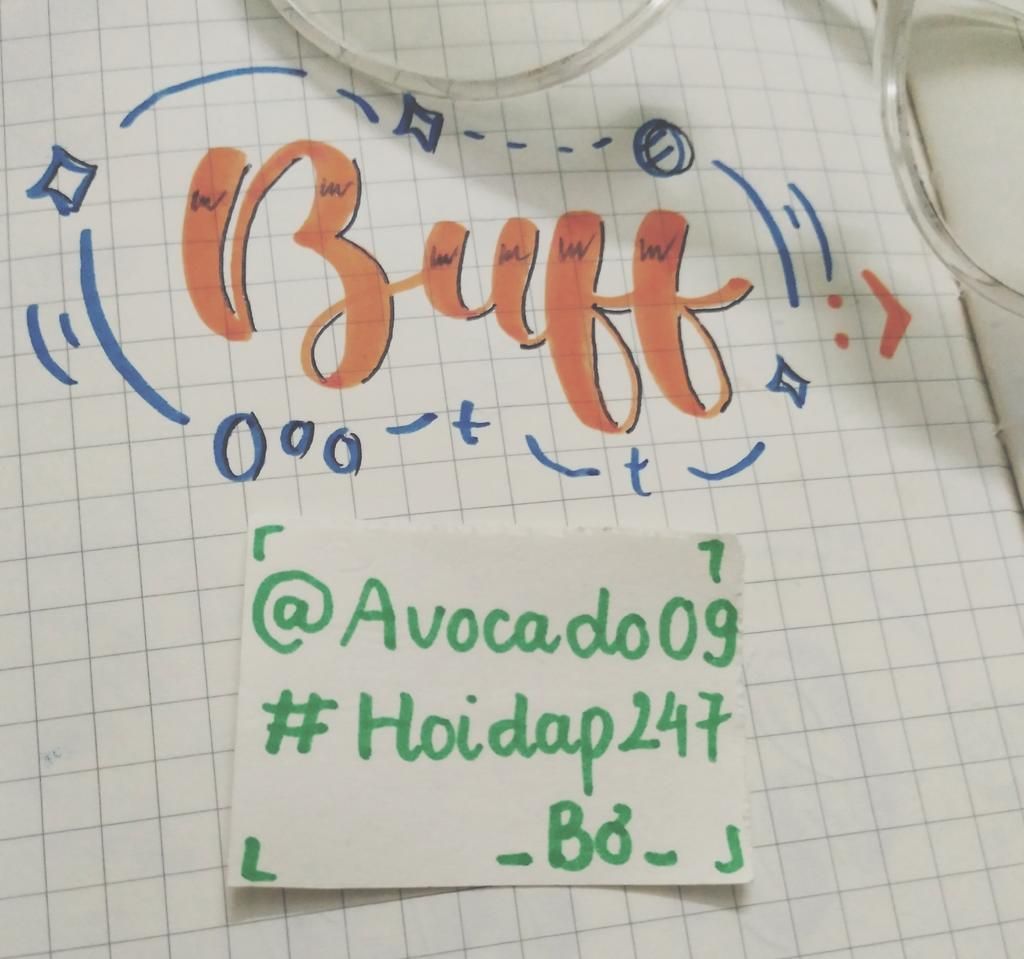 Buff
@Avocado09
#Hoidap247
_Bơ_